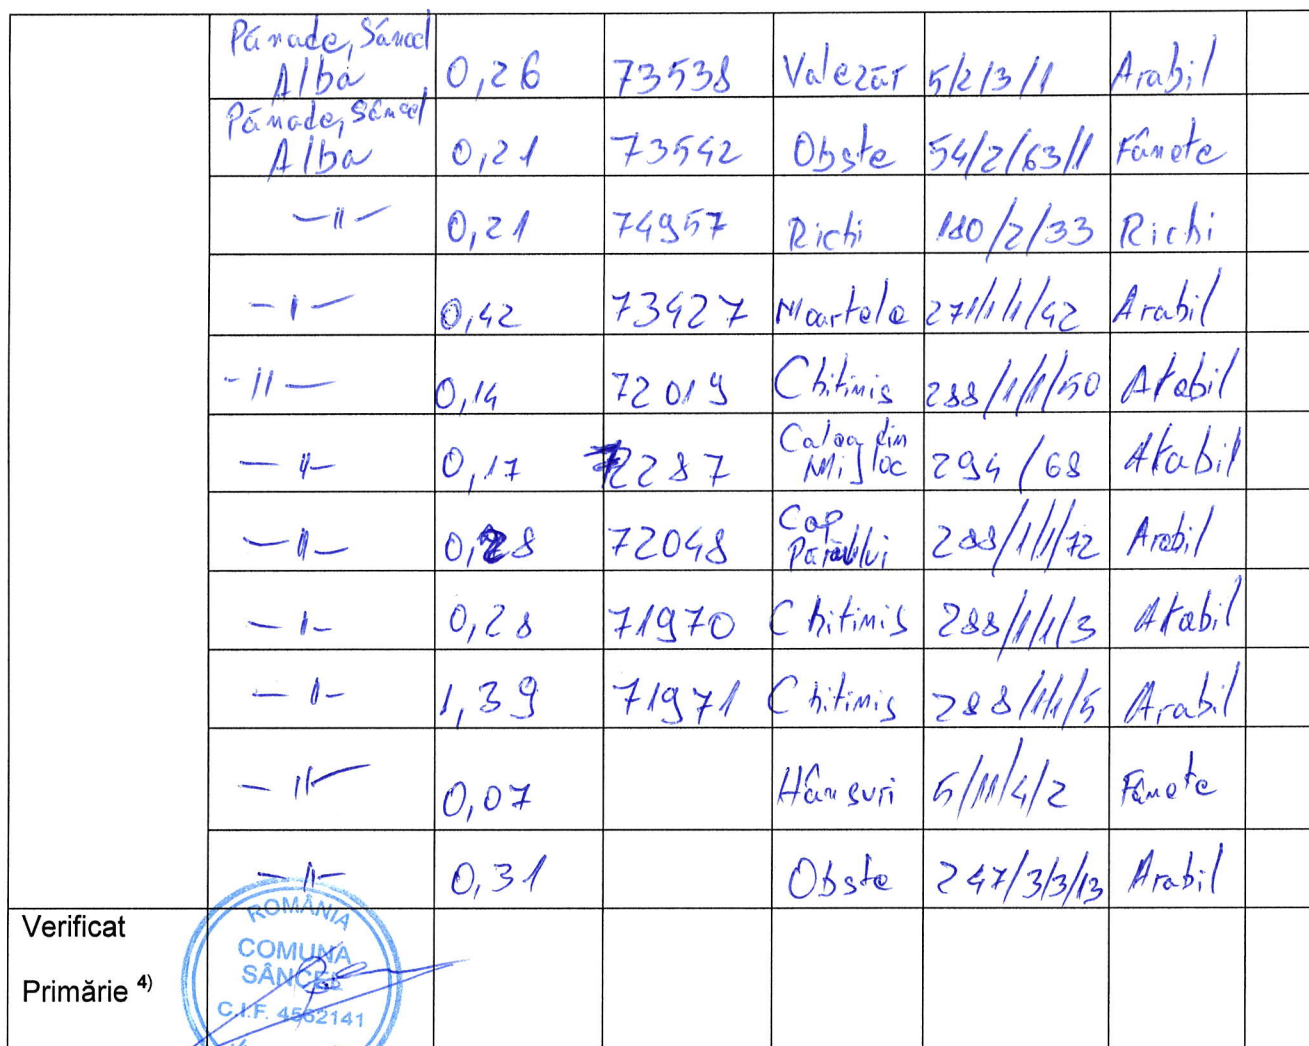 Pănade, Sâncel
Alba 0,26 73538 Valezăr 5/2/3/1 Arabil
Pănade, Sâncel
Alba 0,21 73542 Obste 54/2/63/1 Fânete
—"— 0,21 74957 Richi 180/2/33 Richi
—"— 0,42 73427 Moartele 271/1/1/42 Arabil
—"— 0,14 72019 Chitimis 288/1/1/50 Arabil
—"— 0,17 72287 Caloa din
Mijloc 294/68 Arabil
—"— 0,28 72048 Cap
Părăului 288/1/1/72 Arabil
—"— 0,28 71970 Chitimis 288/1/1/3 Arabil
—"— 1,39 71971 Chitimis 288/1/1/5 Arabil
—"— 0,07 Hânsuri 5/11/4/2 Fânete
—"— 0,31 Obste 247/3/3/13 Arabil
Verificat
Primărie 4)
ROMÂNIA
COMUNA
SÂNCEL
C.I.F. 4562141